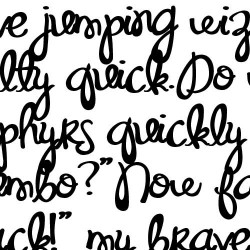 ve jumping wiz
lty quick. Do
phyrs quickly
mbo?” Now fa
ack!” my brave